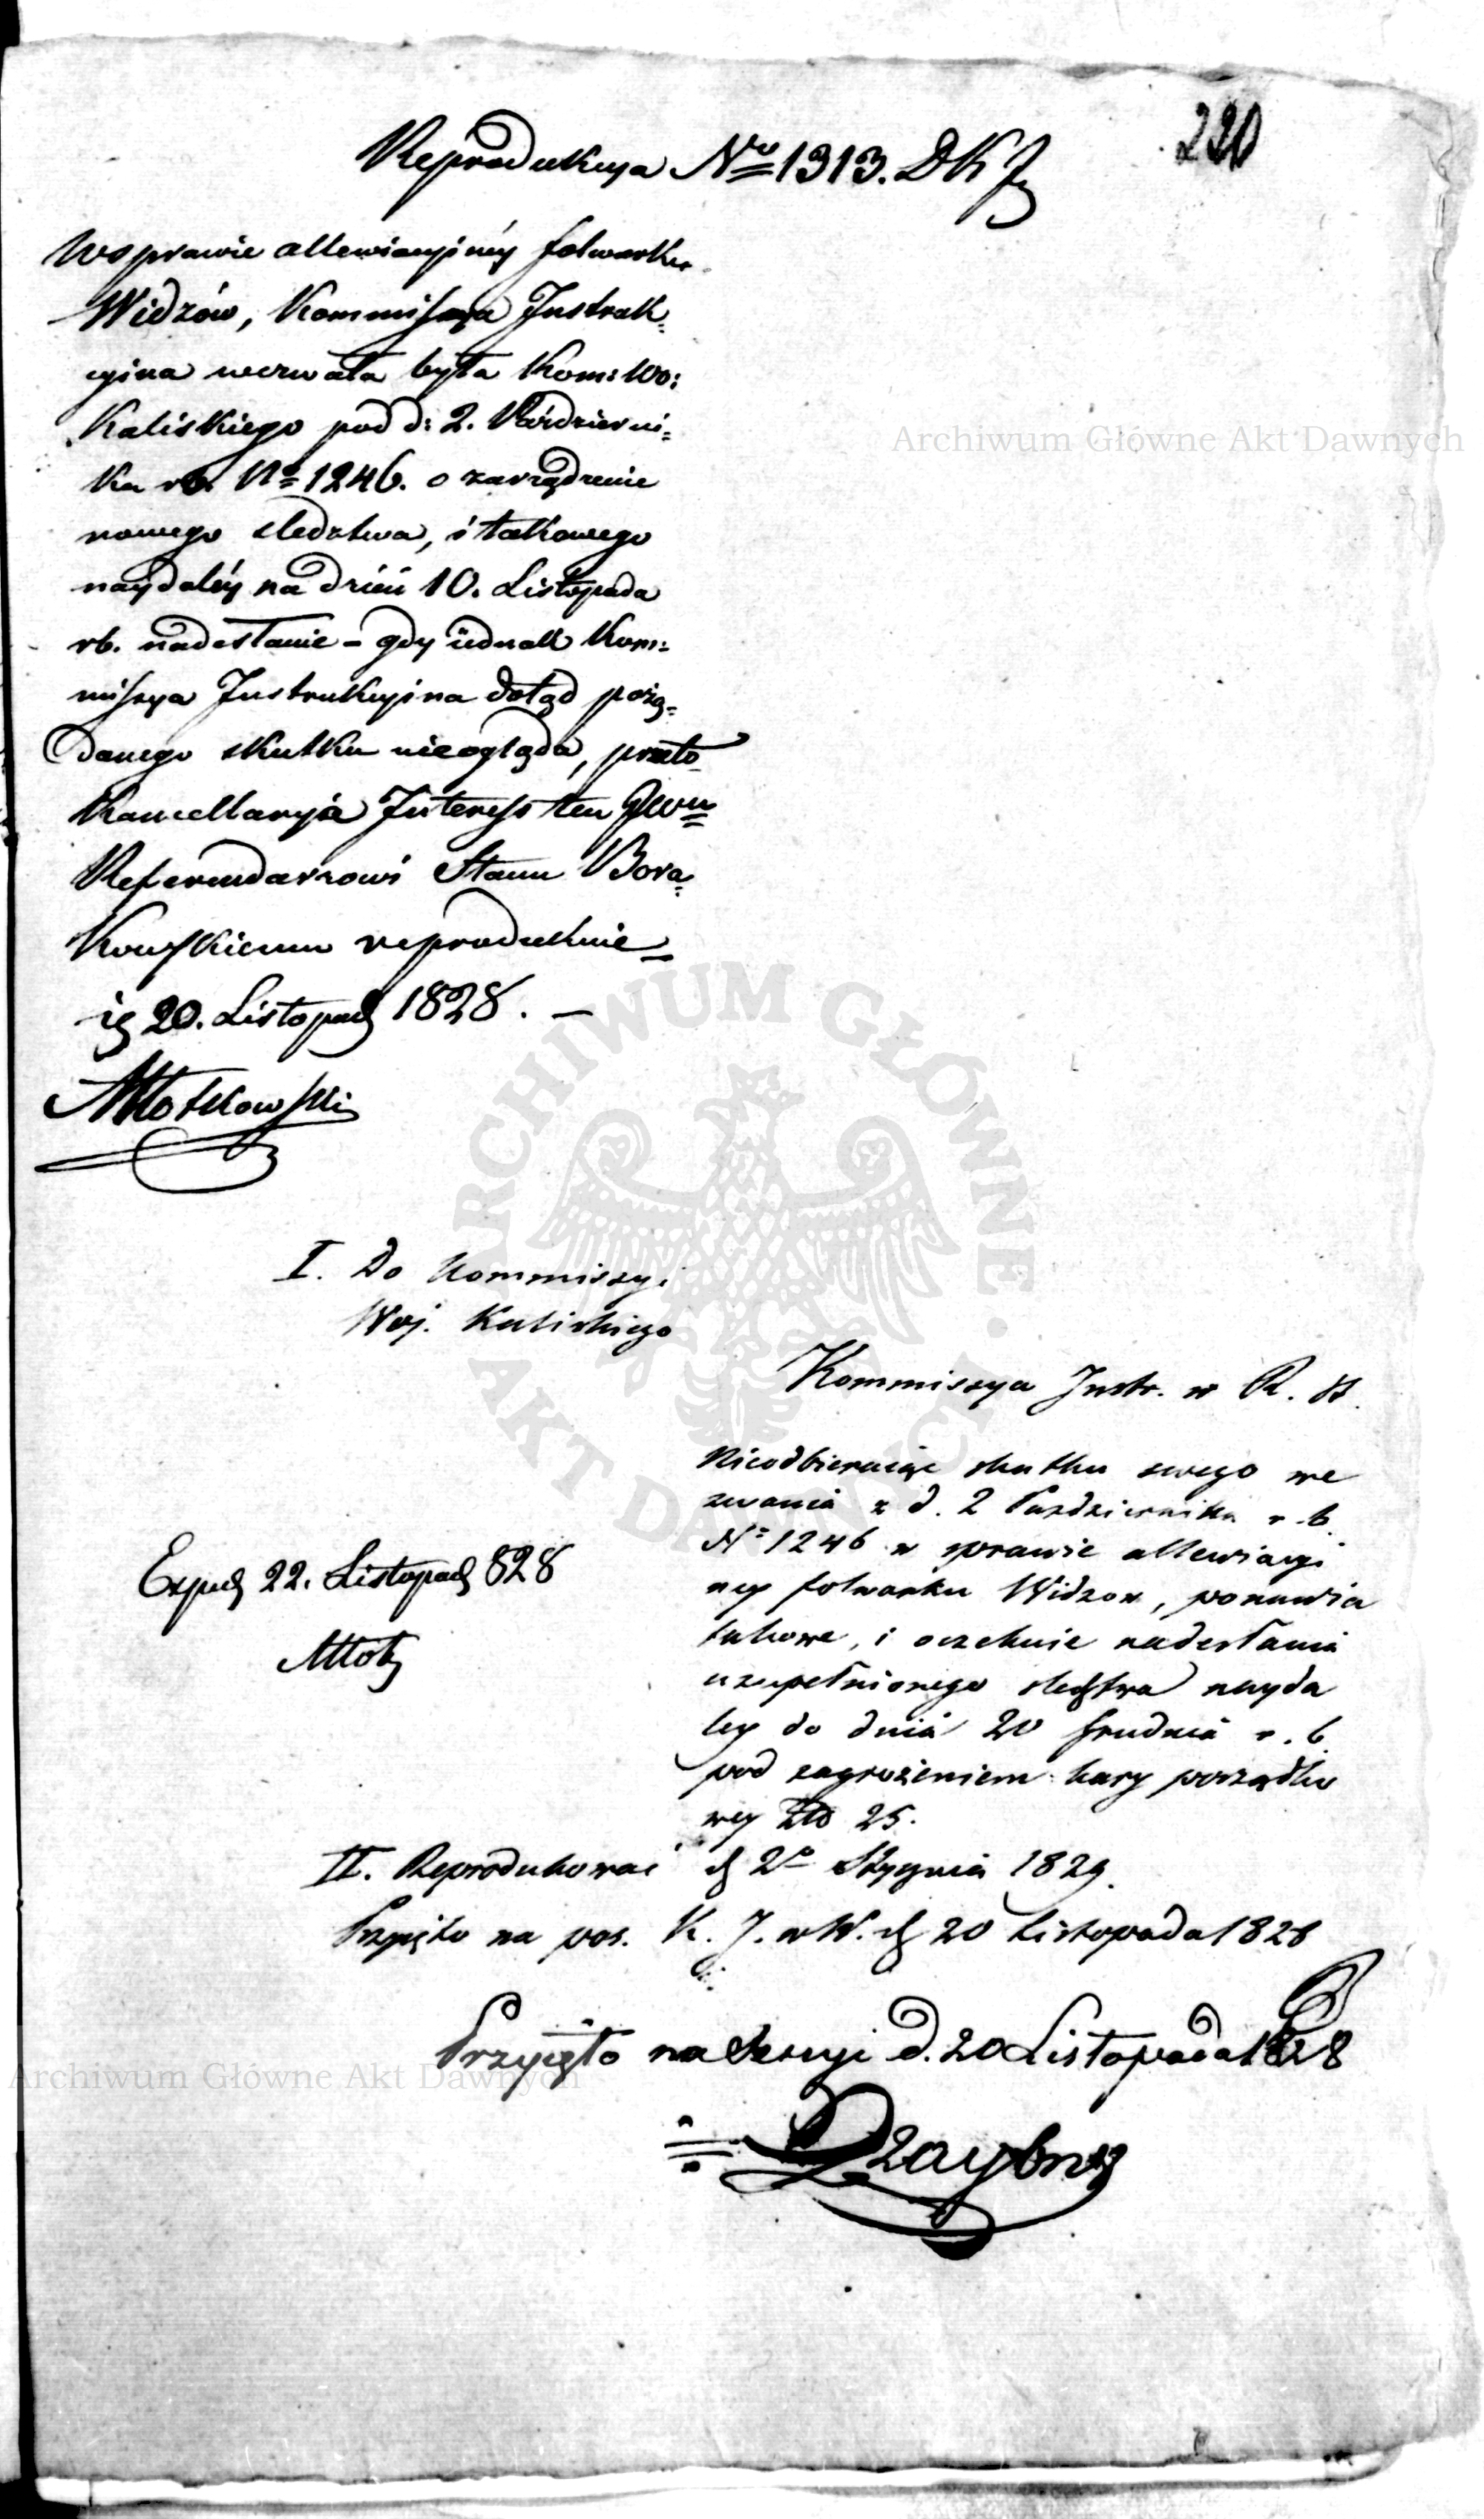 220
Reprodukcya No 1313. DKJ
W sprawie allewiacyjnéy folwarku
Widzów, Kommissya Instruk=
cyina wezwała była Kom: Wo:
Kaliskiego pod d: 2. Październi=
ka rb. No 1246. o zarządzenie
nowego sledztwa, i takowego
naydaléy na dzień 10. Listopada
rb. nadesłanie - gdy iednak Kom=
missya Instrukcyina dotąd pożą=
danego skutku nieogląda, przeto
Kancellaryia Interess ten JWu
Referendarzowi Stanu Bora=
kowskiemu reprodukuie=
ią 20. Listopad 1828. —
Młotkowski
I. Do Kommissyi
Woj. Kaliskiego
Kommissya Instr. w R. St.
Nieodbieraiąc skutku swego we
zwania z d. 2 Października r.b.
No 1246 w sprawie allewiacyi
ney folwarku Widzow, ponawia
takowe, i oczekuie nadesłania
uzupełnionego sledztwa nayda
ley do dnia 20 Grudnia r.b.
pod zagrożeniem kary porządko
wey Złt 25.
Exped 22. Listopad 828
Młotk
II. Reprodukowac d 2o Stycznia 1829.
Przyięto na pos. K. J. w W. d 20 Listopada 1828
Przyięto na Sessyi d. 20 Listopada 1828
Archiwum Główne Akt Dawnych
Archiwum Główne Akt Dawnych
ARCHIWUM GŁÓWNE AKT DAWNYCH